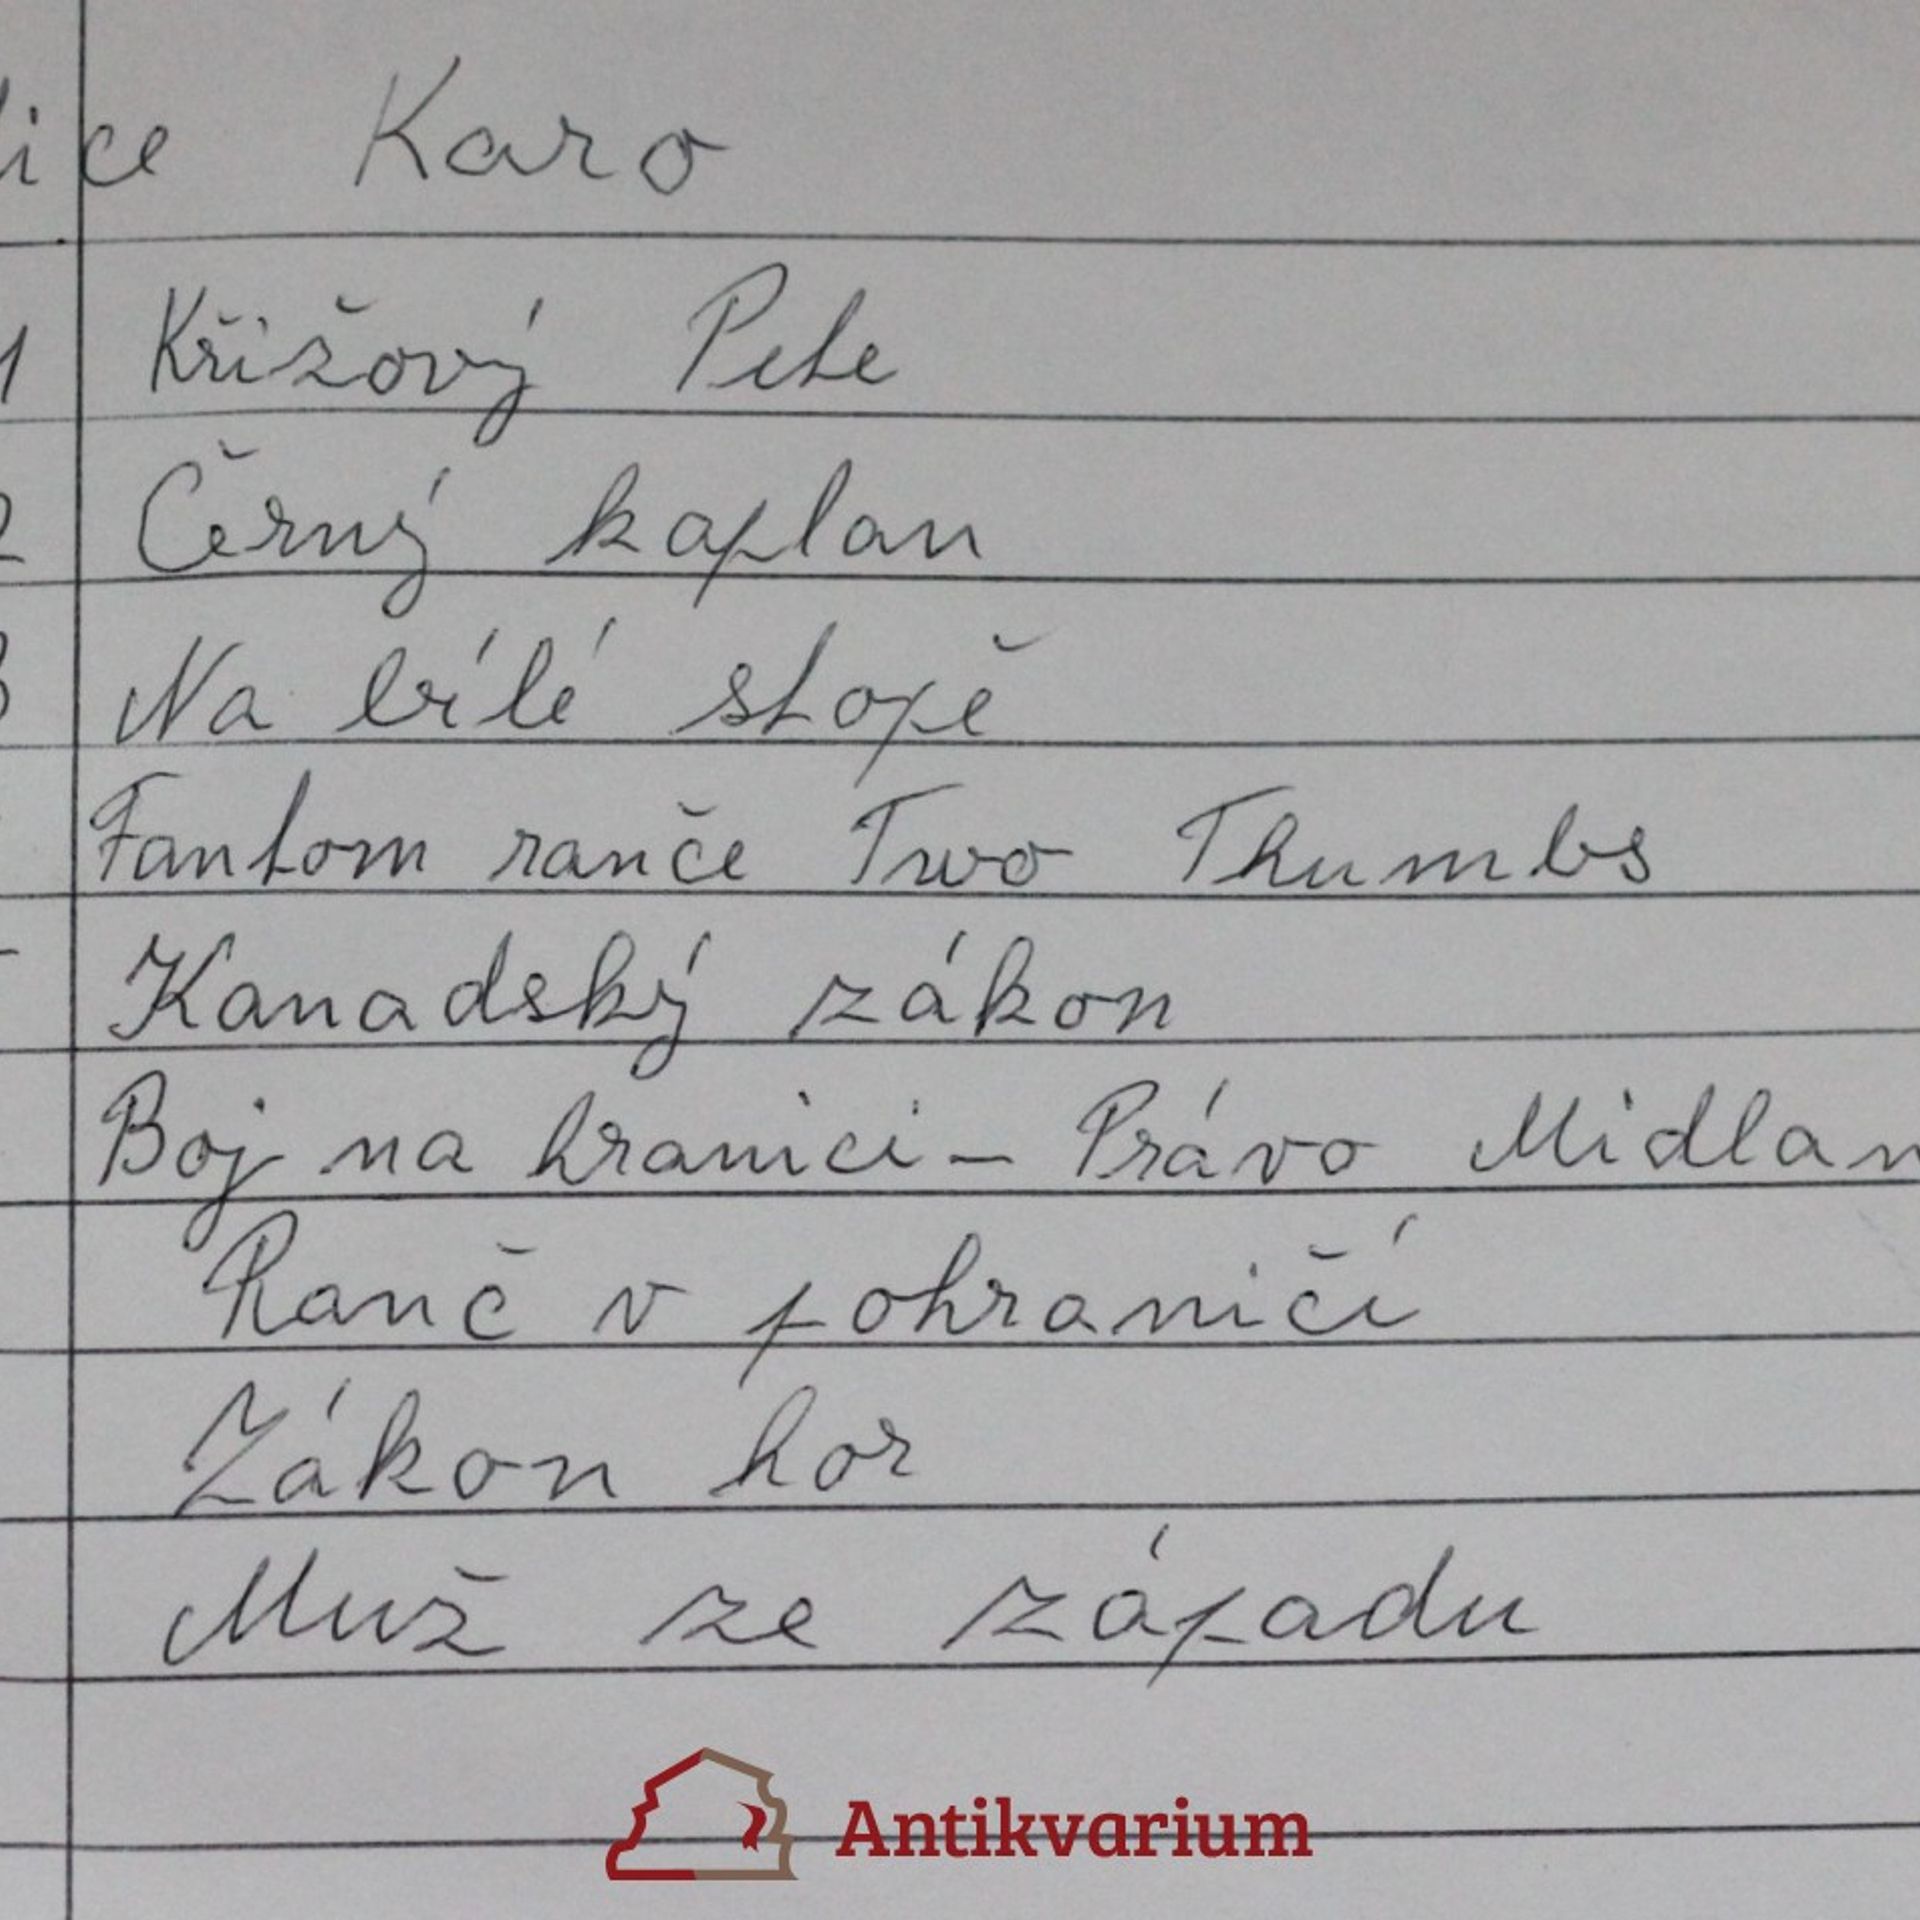 ice Karo
1 Křižový Pete
2 Černý kaplan
3 Na bílé stopě
Fantom ranče Two Thumbs
Kanadský zákon
Boj na hranici - Právo Midlan
Ranč v pohraničí
Zákon hor
Muž ze západu
Antikvarium